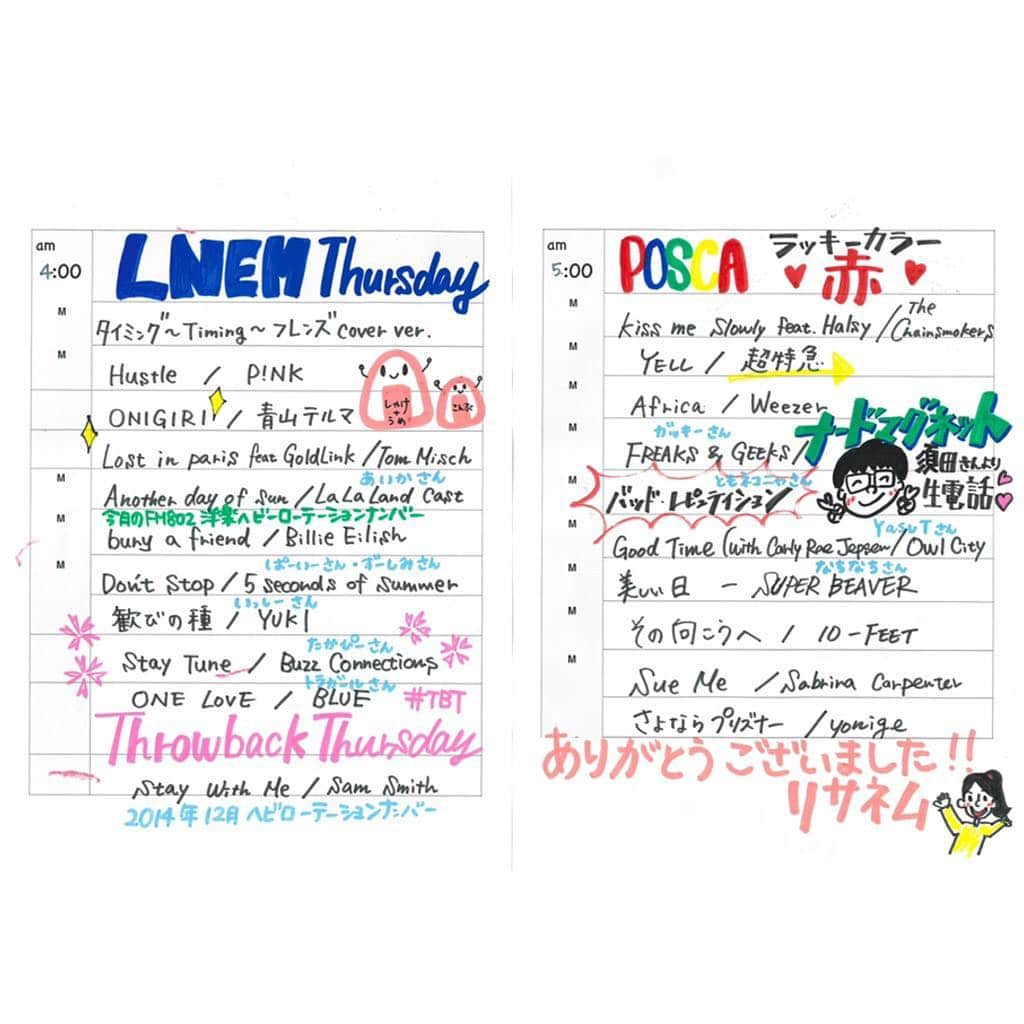 am
4:00
LNEM Thursday
M
タイミング～Timing～フレンズ cover ver.
M
Hustle / P!NK
ONIGIRI / 青山テルマ
しゃけ
+
うめ
こんぶ
M
Lost in paris feat GoldLink / Tom Misch
M
あいかさん
Another day of sun / LaLaLand Cast
今月のFM802 洋楽ヘビーローテーションナンバー
M
bury a friend / Billie Eilish
ぱーいーさん・ずーしみさん
M
Don't Stop / 5 seconds of summer
いっしーさん
歓びの種 / YUKI
たかぴーさん
Stay Tune / Buzz Connections
トラガールさん
ONE LOVE / BLUE #TBT
Throwback Thursday
Stay With Me / Sam Smith
2014年12月 ヘビローテーションナンバー
am
5:00
POSCA ラッキーカラー
赤
M
Kiss me Slowly feat. Halsy / The Chainsmokers
M
YELL / 超特急
Africa / Weezer
M
ガッキーさん
FREAKS & GEEKS / ナードマグネット
須田さんより
生電話
M
ともネコニャさん
バッド・レピュテイション
M
YasuTさん
Good Time (with Carly Rae Jepsen / Owl City
なちなちさん
M
美しい日 - SUPER BEAVER
その向こうへ / 10-FEET
M
Sue Me / Sabrina Carpenter
さよならプリズナー / yonige
ありがとうございました!!
リサネム